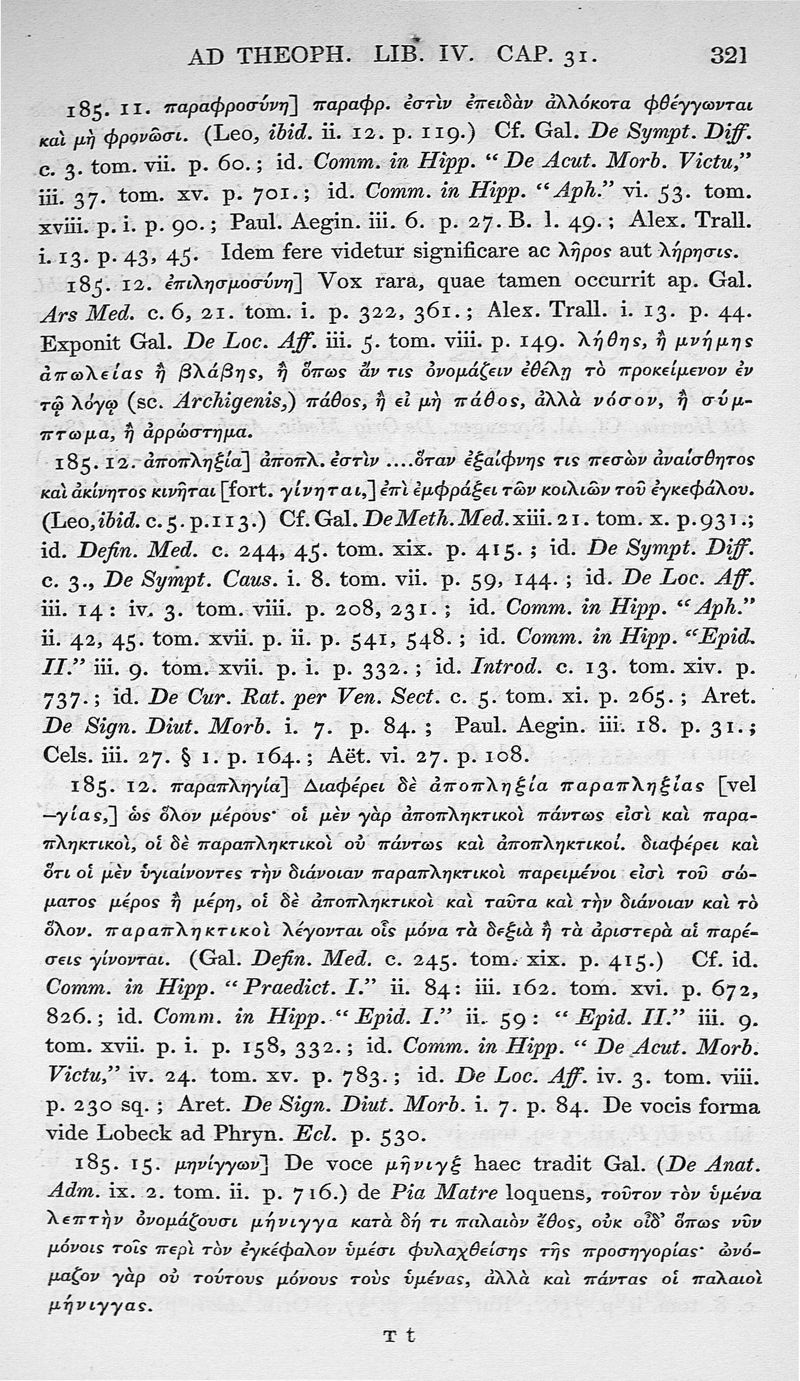 AD THEOPH. LIB. IV. CAP. 31. 321
185. 11. παραφροσύνη] παραφρ. ἐστὶν ἐπειδὰν ἀλλόκοτα φθέγγωνται
καὶ μὴ φρονῶσι. (Leo, ibid. ii. 12. p. 119.) Cf. Gal. De Sympt. Diff.
c. 3. tom. vii. p. 60.; id. Comm. in Hipp. “ De Acut. Morb. Victu,”
iii. 37. tom. xv. p. 701.; id. Comm. in Hipp. “Aph.” vi. 53. tom.
xviii. p. i. p. 90.; Paul. Aegin. iii. 6. p. 27. B. l. 49.; Alex. Trall.
i. 13. p. 43, 45. Idem fere videtur significare ac λῆρος aut λήρησις.
185. 12. ἐπιλησμοσύνη] Vox rara, quae tamen occurrit ap. Gal.
Ars Med. c. 6, 21. tom. i. p. 322, 361.; Alex. Trall. i. 13. p. 44.
Exponit Gal. De Loc. Aff. iii. 5. tom. viii. p. 149. λήθης, ἢ μνήμης
ἀπωλείας ἢ βλάβης, ἢ ὅπως ἄν τις ὀνομάζειν ἐθέλῃ τὸ προκείμενον ἐν
τῷ λόγῳ (sc. Archigenis,) πάθος, ἢ εἰ μὴ πάθος, ἀλλὰ νόσον, ἢ σύμ-
πτωμα, ἢ ἀρρώστημα.
185. 12. ἀποπληξία] ἀποπλ. ἐστὶν ....ὅταν ἐξαίφνης τις πεσὼν ἀναίσθητος
καὶ ἀκίνητος κινῆται [fort. γίνηται,] ἐπὶ ἐμφράξει τῶν κοιλιῶν τοῦ ἐγκεφάλου.
(Leo, ibid. c. 5. p. 113.) Cf. Gal. De Meth. Med. xiii. 21. tom. x. p. 931.;
id. Defin. Med. c. 244, 45. tom. xix. p. 415. ; id. De Sympt. Diff.
c. 3., De Sympt. Caus. i. 8. tom. vii. p. 59, 144. ; id. De Loc. Aff.
iii. 14 : iv. 3. tom. viii. p. 208, 231. ; id. Comm. in Hipp. “Aph.”
ii. 42, 45. tom. xvii. p. ii. p. 541, 548. ; id. Comm. in Hipp. “Epid.
II.” iii. 9. tom. xvii. p. i. p. 332. ; id. Introd. c. 13. tom. xiv. p.
737. ; id. De Cur. Rat. per Ven. Sect. c. 5. tom. xi. p. 265. ; Aret.
De Sign. Diut. Morb. i. 7. p. 84. ; Paul. Aegin. iii. 18. p. 31. ;
Cels. iii. 27. § 1. p. 164. ; Aët. vi. 27. p. 108.
185. 12. παραπληγία] Διαφέρει δὲ ἀποπληξία παραπληξίας [vel
—γίας,] ὡς ὅλον μέρους· οἱ μὲν γὰρ ἀποπληκτικοὶ πάντως εἰσὶ καὶ παρα-
πληκτικοὶ, οἱ δὲ παραπληκτικοὶ οὐ πάντως καὶ ἀποπληκτικοί. διαφέρει καὶ
ὅτι οἱ μὲν ὑγιαίνοντες τὴν διάνοιαν παραπληκτικοὶ παρειμένοι εἰσὶ τοῦ σώ-
ματος μέρος ἢ μέρη, οἱ δὲ ἀποπληκτικοὶ καὶ ταῦτα καὶ τὴν διάνοιαν καὶ τὸ
ὅλον. παραπληκτικοὶ λέγονται οἷς μόνα τὰ δεξιὰ ἢ τὰ ἀριστερὰ αἱ παρέ-
σεις γίνονται. (Gal. Defin. Med. c. 245. tom. xix. p. 415.) Cf. id.
Comm. in Hipp. “ Praedict. I.” ii. 84 : iii. 162. tom. xvi. p. 672,
826. ; id. Comm. in Hipp. “ Epid. I.” ii. 59 : “ Epid. II.” iii. 9.
tom. xvii. p. i. p. 158, 332. ; id. Comm. in Hipp. “ De Acut. Morb.
Victu,” iv. 24. tom. xv. p. 783. ; id. De Loc. Aff. iv. 3. tom. viii.
p. 230 sq. ; Aret. De Sign. Diut. Morb. i. 7. p. 84. De vocis forma
vide Lobeck ad Phryn. Ecl. p. 530.
185. 15. μηνίγγων] De voce μῆνιγξ haec tradit Gal. (De Anat.
Adm. ix. 2. tom. ii. p. 716.) de Pia Matre loquens, τοῦτον τὸν ὑμένα
λεπτὴν ὀνομάζουσι μήνιγγα κατὰ δή τι παλαιὸν ἔθος, οὐκ οἶδ’ ὅπως νῦν
μόνοις τοῖς περὶ τὸν ἐγκέφαλον ὑμέσι φυλαχθείσης τῆς προσηγορίας· ὠνό-
μαζον γὰρ οὐ τούτους μόνους τοὺς ὑμένας, ἀλλὰ καὶ πάντας οἱ παλαιοὶ
μήνιγγας.
T t